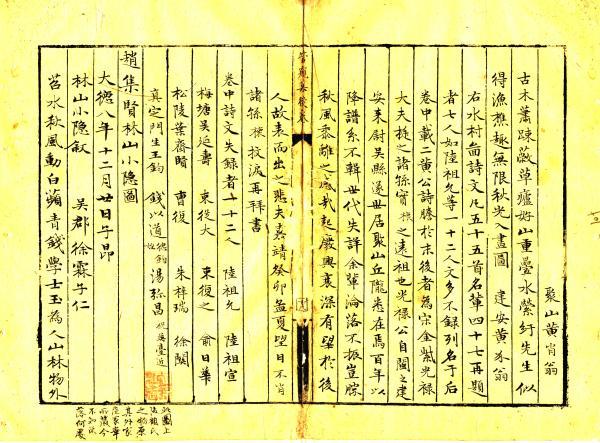 聚山黄肖翁
古木蕭踈蔽草廬好山重叠水縈紆先生似
得漁樵趣無限秋光入畫圖　建安黄公翁
右水村啚詩文凡五十五首名軰四十七再題
者七人如陸祖允等一十二人文多不録列名于后
卷中載二黄公詩牓於末後者為宋金紫光禄
大夫挺之諸孫實稷之遠祖也光禄公自閩之建
安来尉吴縣遂世居聚山丘隴悉在焉百年以
降譜系不輯世代失詳余軰淪落不振豈勝
秋風黍離之感哉起廢興衰深有望於後
人故表而出之悲夫嘉靖癸卯孟夏望日不肖
諸孫稷抆淚再拜書
卷中詩文失録者一十二人　陸祖允　陸祖宣
梅塘吴延壽　束從大　束復之　俞日華
松陵葉齋賢　曹復　朱梓瑞　徐關
真定門生王鈞　錢以道　湯弥昌
趙集賢林山小隠圖
大德八年十二月廿日子昂
林山小隠叙　吴郡徐霖子仁
苕水秋風動白蘋青錢學士玉為人山林物外
管窺妄後卷
此圖上